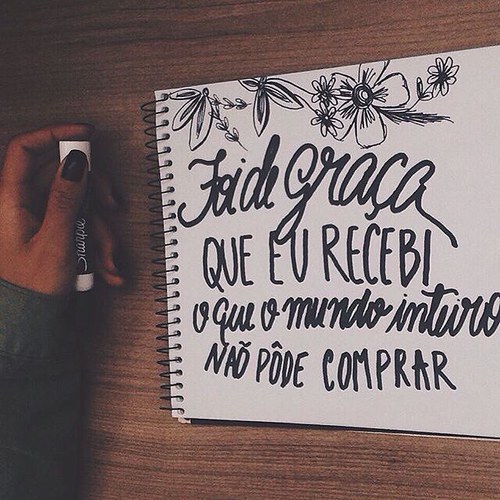 Foi de graça
QUE EU RECEBI
o que o mundo inteiro
NAÕ PÔDE COMPRAR
Sharpie